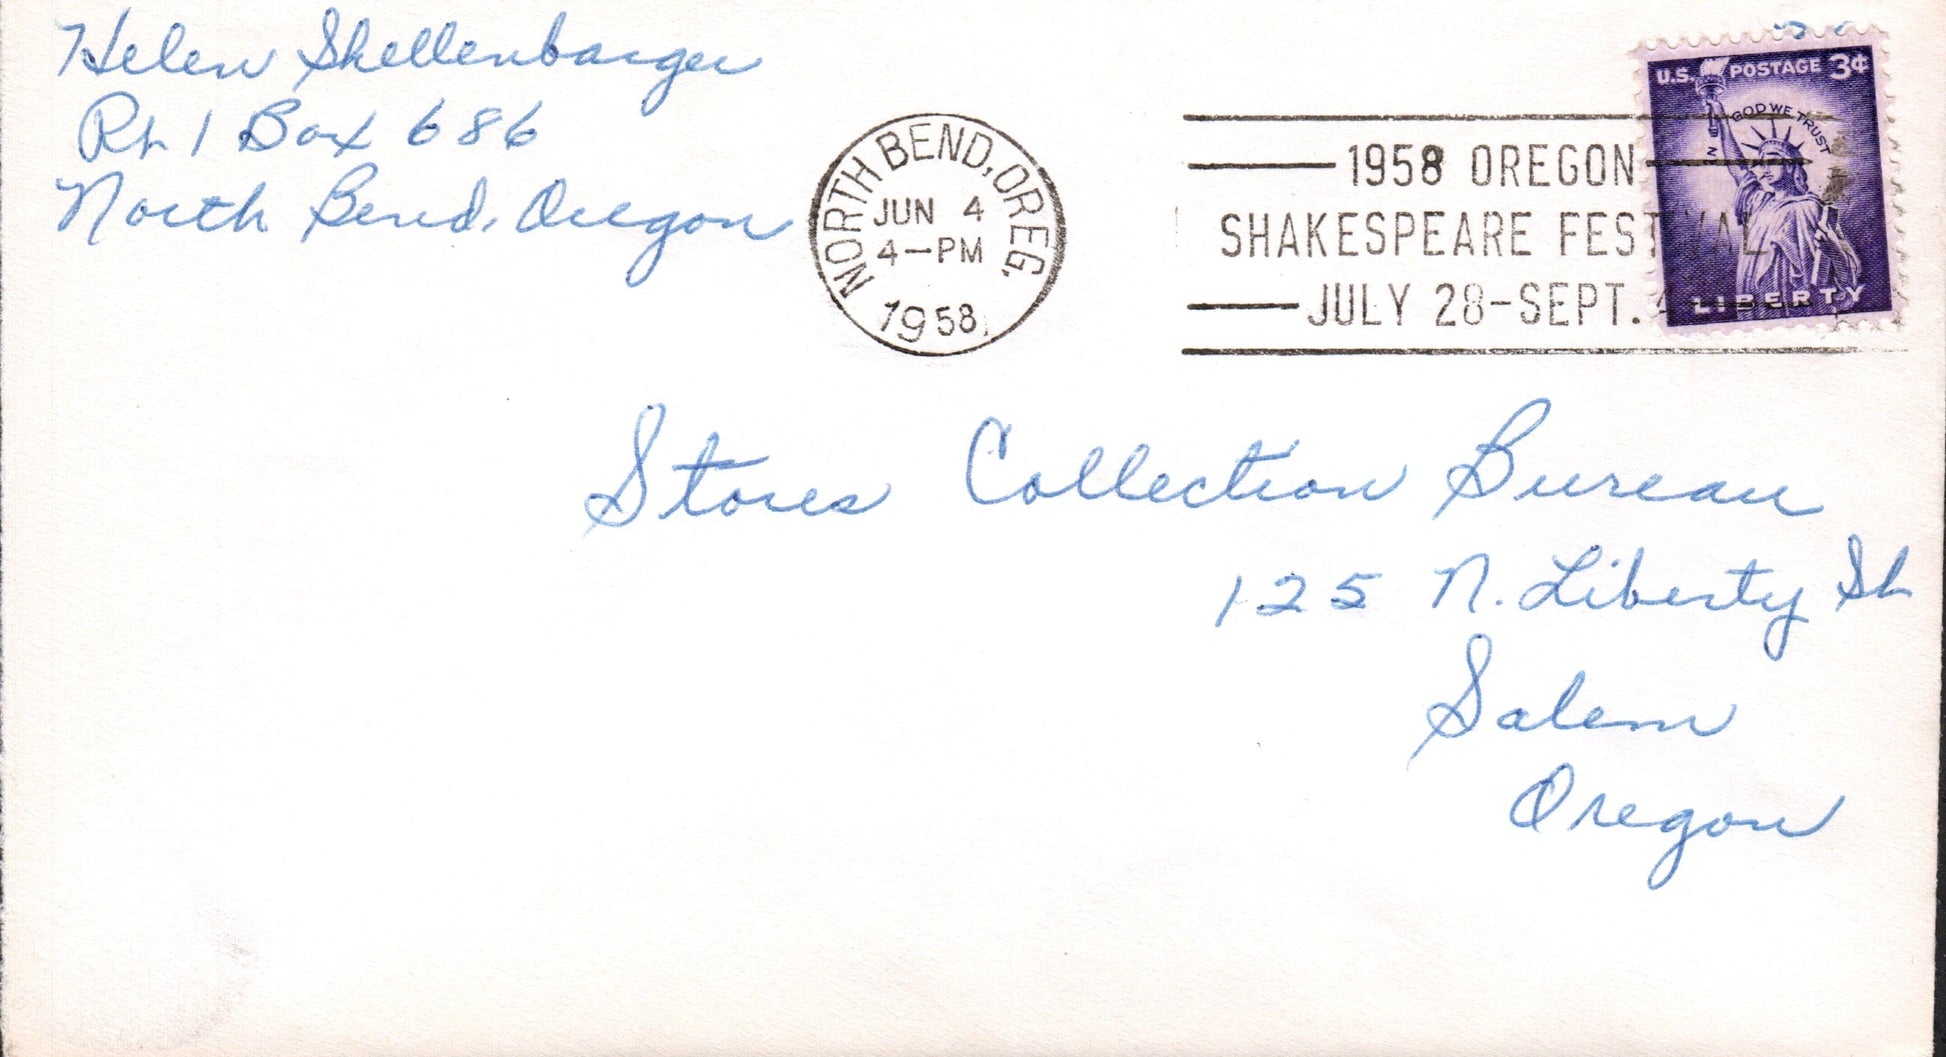 Helen Shellenbarger
Rt 1 Box 686
North Bend, Oregon
NORTH BEND, OREG.
JUN 4
4-PM
1958
1958 OREGON
SHAKESPEARE FESTIVAL
JULY 28-SEPT. 4
U.S. POSTAGE 3¢
IN GOD WE TRUST
LIBERTY
Stores Collection Bureau
125 N. Liberty St
Salem
Oregon